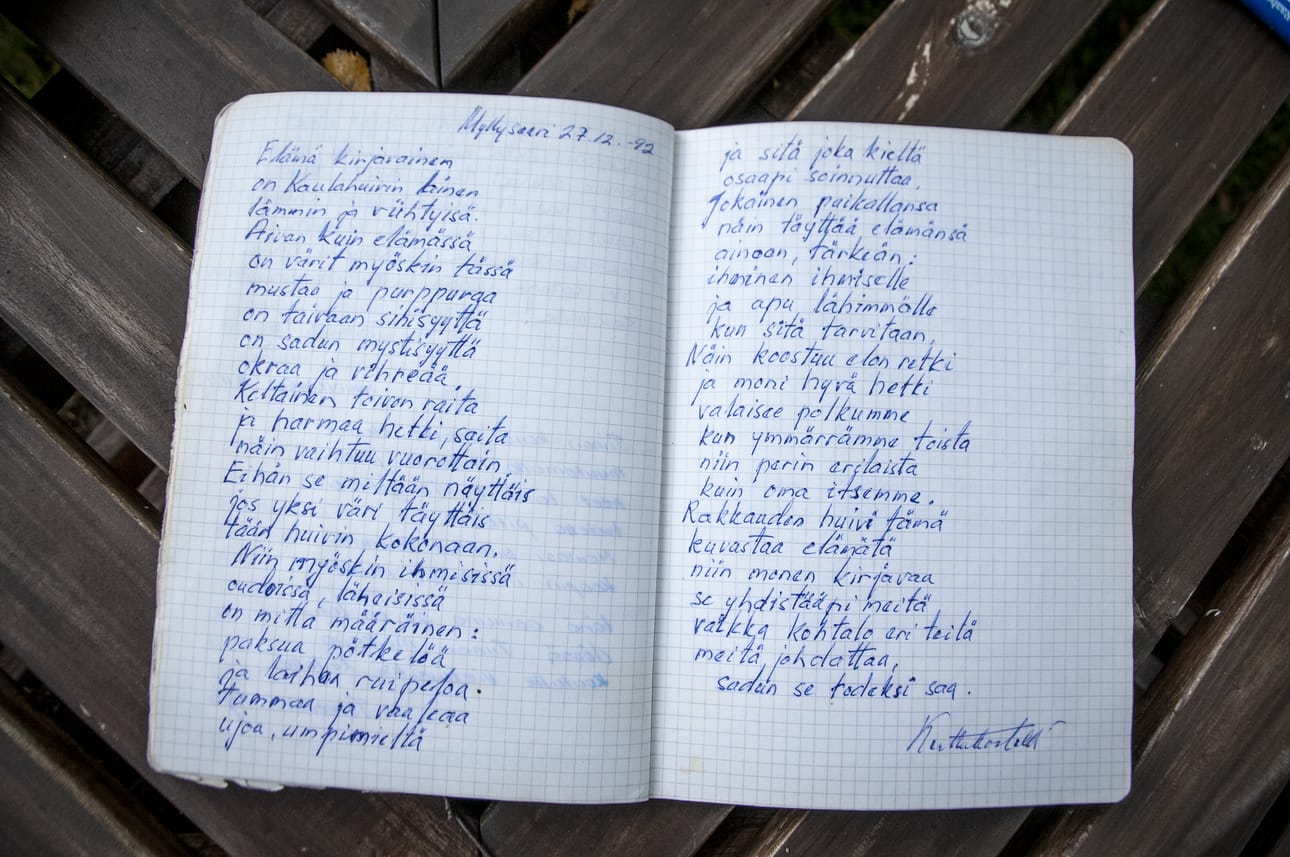 Myllysaari 27.12.-92
Elämä kirjavainen
on Kaulahuivin lainen
lämmin ja viihtyisä.
Aivan kuin elämässä
on värit myöskin tässä
mustaa ja purppuraa
on taivaan sinisyyttä
on sadun mystisyyttä
okraa ja vihreää.
Keltainen toivon raita
ja harmaa hetki, saita
näin vaihtuu vuorottain.
Eihän se miltään näyttäis
jos yksi väri täyttäis
tään huivin kokonaan.
Niin myöskin ihmisissä
oudoissa, läheisissä
on mitta määräinen:
paksua pötkelöä
ja laihaa ruipeloa.
tummaa ja vaaleaa
ujoa, umpimieltä
ja sitä joka kieltä
osaapi soinnuttaa.
Jokainen paikallansa
näin täyttää elämänsä
ainoan, tärkeän:
ihminen ihmiselle
ja apu lähimmälle
kun sitä tarvitaan.
Näin koostuu elon retki
ja moni hyvä hetki
valaisee polkumme
kun ymmärrämme toista
niin perin erilaista
kuin oma itsemme.
Rakkauden huivi tämä
kuvastaa elämätä
niin monen kirjavaa
se yhdistääpi meitä
vaikka kohtalo eri teitä
meitä johdattaa,
sadun se todeksi saa.